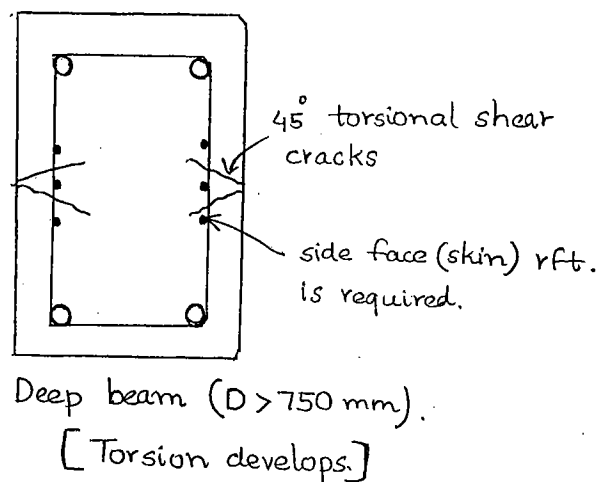 45° torsional shear
cracks
side face (skin) rft.
is required.
Deep beam (D > 750 mm).
[Torsion develops.]